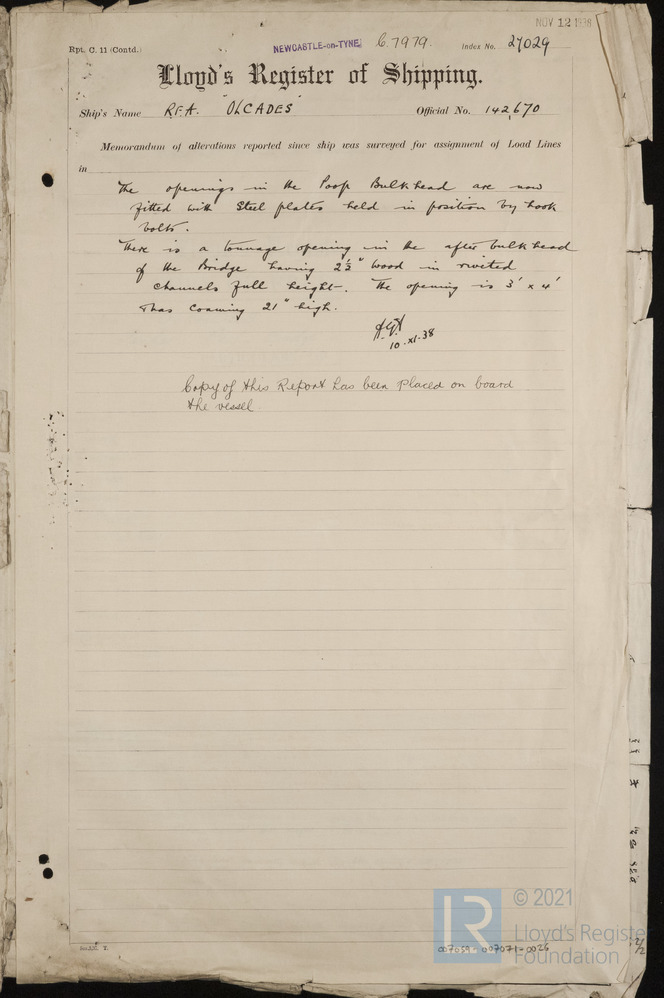 NOV 12 1938
Rpt. C. 11 (Contd.) NEWCASTLE-on-TYNE C.7979. Index No. 27029
Lloyd's Register of Shipping.
Ship's Name R.F.A. "OLCADES" Official No. 142,670
Memorandum of alterations reported since ship was surveyed for assignment of Load Lines
in
The openings in the Poop Bulkhead are now
fitted with Steel plates held in position by hook
bolts.
There is a tonnage opening in the after bulkhead
of the Bridge having 2½" wood in riveted
channels full height. The opening is 3' x 4'
& has coaming 21" high.
10.XI.38
Copy of this Report has been placed on board
the vessel.
© 2021
LR
Lloyd's Register
Foundation
007059-007071-0026